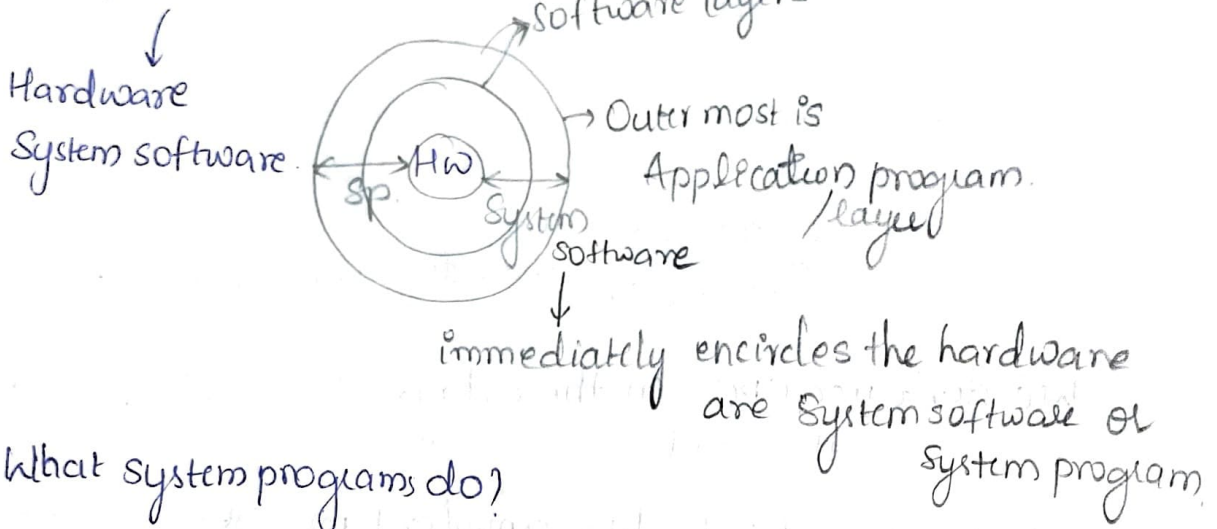 Software layer
Hardware
System software.
HW
Sp.
System
software
→ Outer most is
Application program.
/layer
immediately encircles the hardware
are System software or
System program
What system programs do?